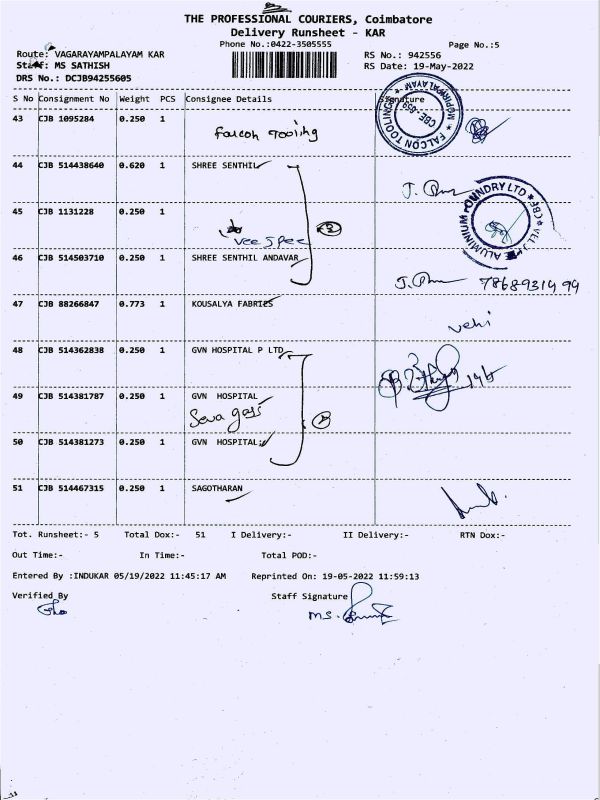 THE PROFESSIONAL COURIERS, Coimbatore
Delivery Runsheet - KAR
Phone No.:0422-3505555
Page No.:5
Route: VAGARAYAMPALAYAM KAR
RS No.: 942556
Staff: MS SATHISH
RS Date: 19-May-2022
DRS No.: DCJB94255605
S No Consignment No Weight PCS Consignee Details Signature
43 CJB 1095284 0.250 1
Falcon Tooling
FALCON TOOLING MOPIRIPALAYAM CBE-659
44 CJB 514438640 0.620 1 SHREE SENTHIL
45 CJB 1131228 0.250 1
Vee Jpee
FOUNDRY LTD CBE ALUMINIUM
46 CJB 514503710 0.250 1 SHREE SENTHIL ANDAVAR
7868931499
47 CJB 88266847 0.773 1 KOUSALYA FABRIES
48 CJB 514362838 0.250 1 GVN HOSPITAL P LTD
49 CJB 514381787 0.250 1 GVN HOSPITAL
Seva gass
50 CJB 514381273 0.250 1 GVN HOSPITAL
51 CJB 514467315 0.250 1 SAGOTHARAN
Tot. Runsheet:- 5 Total Dox:- 51 I Delivery:- II Delivery:- RTN Dox:-
Out Time:- In Time:- Total POD:-
Entered By :INDUKAR 05/19/2022 11:45:17 AM Reprinted On: 19-05-2022 11:59:13
Verified By Staff Signature
MS.